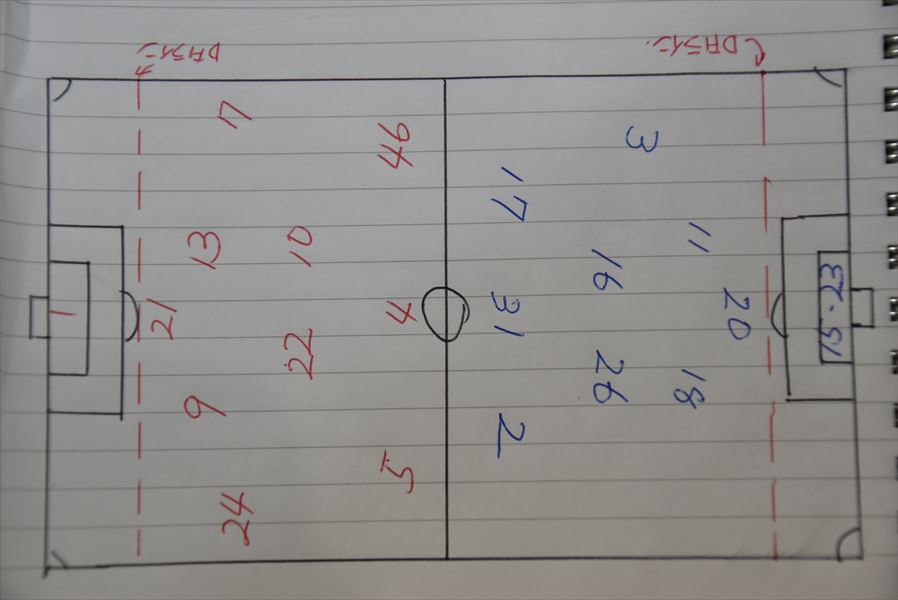 DFライン
DFライン
7
46
3
17
13
10
11
16
21
1
4
31
20
15・23
22
9
26
18
2
5
24